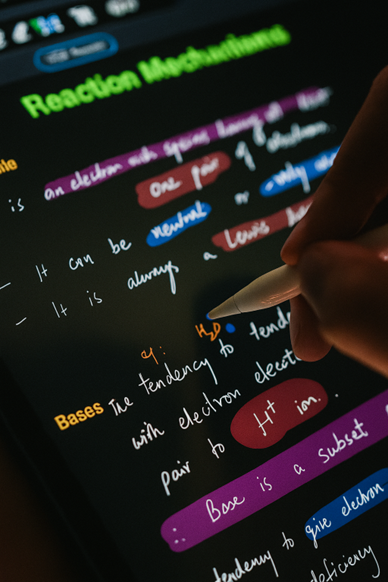 Reaction Mechanisms
is an electron rich species having at least
one pair of electron.
- It can be neutral or -vely
- It is always a Lewis
eg: H₂O
Bases The tendency to tend
with electron
pair to H⁺ ion.
∴ Base is a subset
tendency to give electron
deficiency